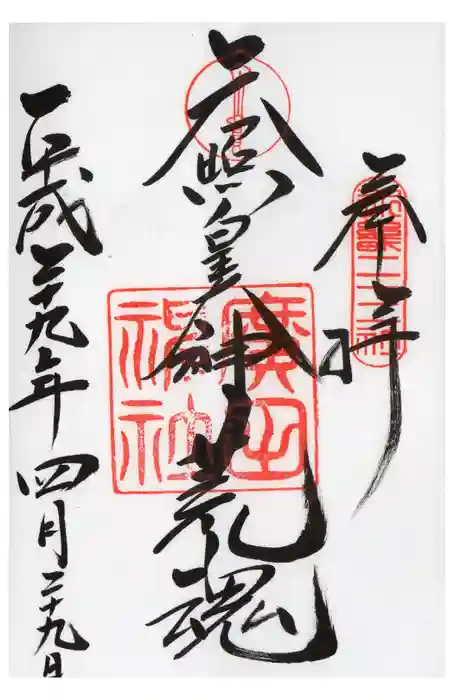 奉拝
天照皇神荒魂
廣田神社
平成二十九年四月二十九日